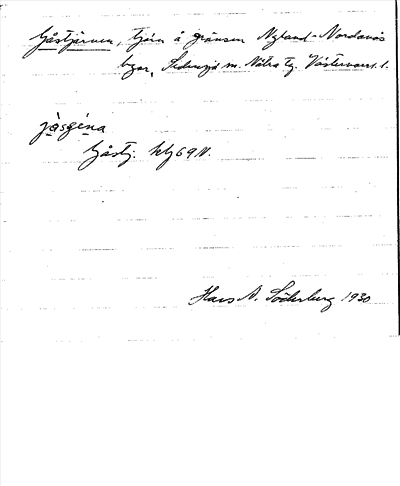 Gåstjärnen, tjärn å gränsen Nyland-Nordanås
byar, m. Nätra tg. Västernorrl. l.
jåsɡéna
Gåstj.
Hans N. Söderberg 1930